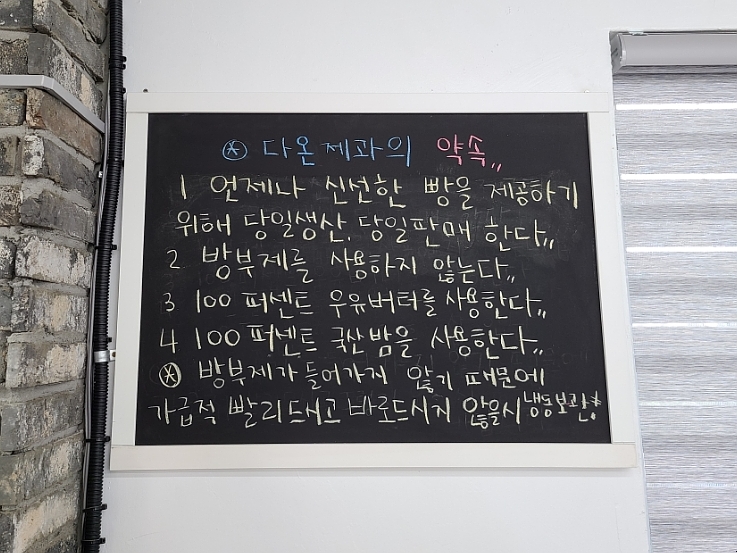 ⊛ 다온제과의 약속,,
1 언제나 신선한 빵을 제공하기
위해 당일생산, 당일판매 한다,,
2 방부제를 사용하지 않는다,,
3 100 퍼센트 우유버터를 사용한다,,
4 100 퍼센트 국산밤을 사용한다,,
⊛ 방부제가 들어가지 않기 때문에
가급적 빨리드시고 바로드시지 않을시 냉동보관!